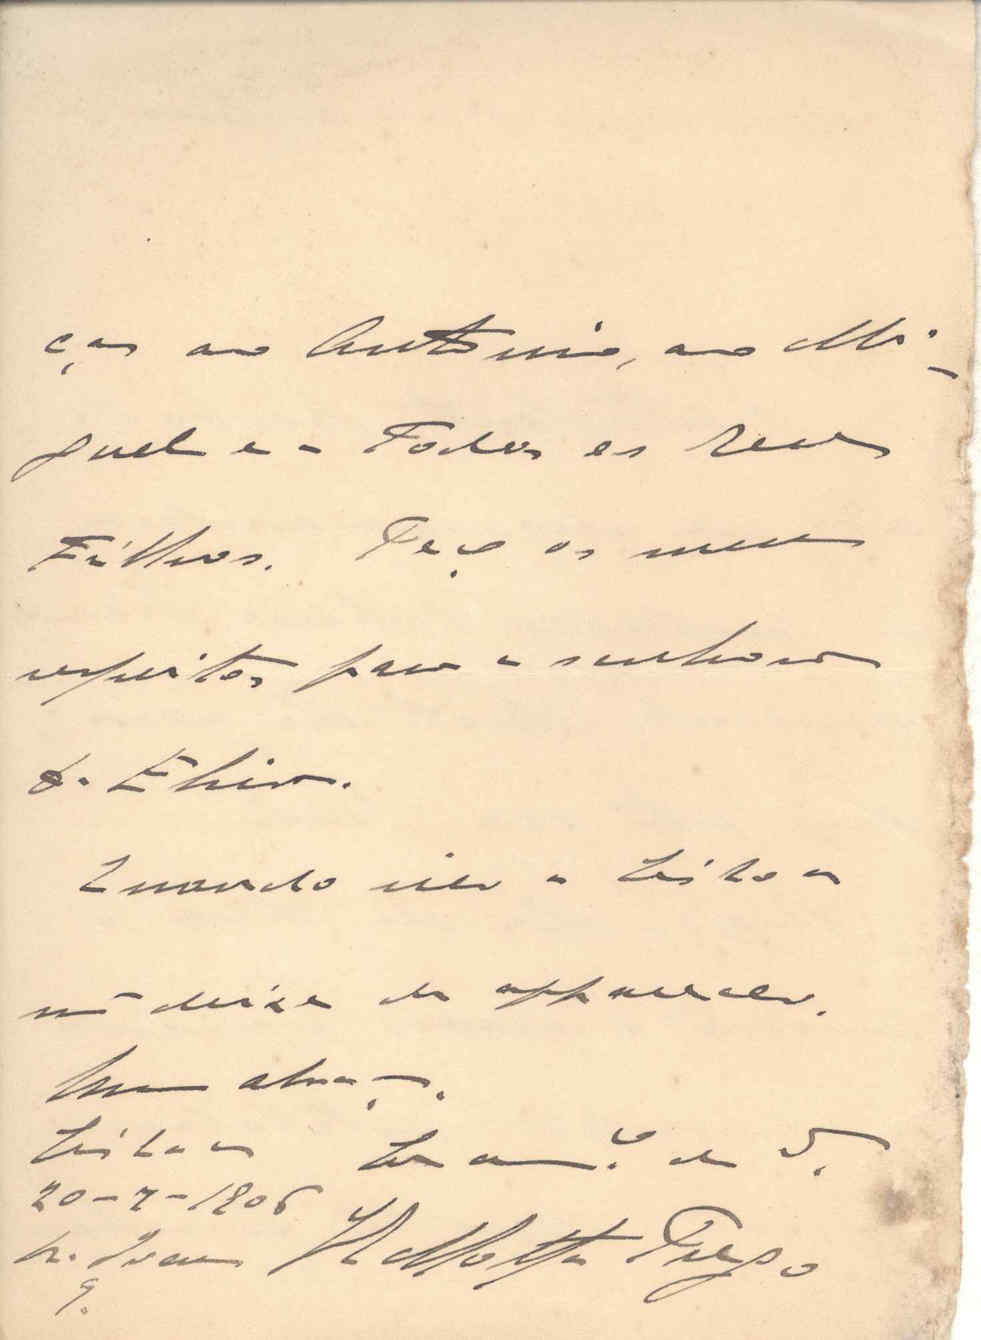 ças ao Antonio, ao Mi-
guel e a Todos os seus
Filhos. Faço os meus
respeitos para a senhora
d. Elvira.
Quando vier a Lisboa
não deixe de apparecer.
Um abraço.
Lisboa
20-7-1906
de V.
Trego